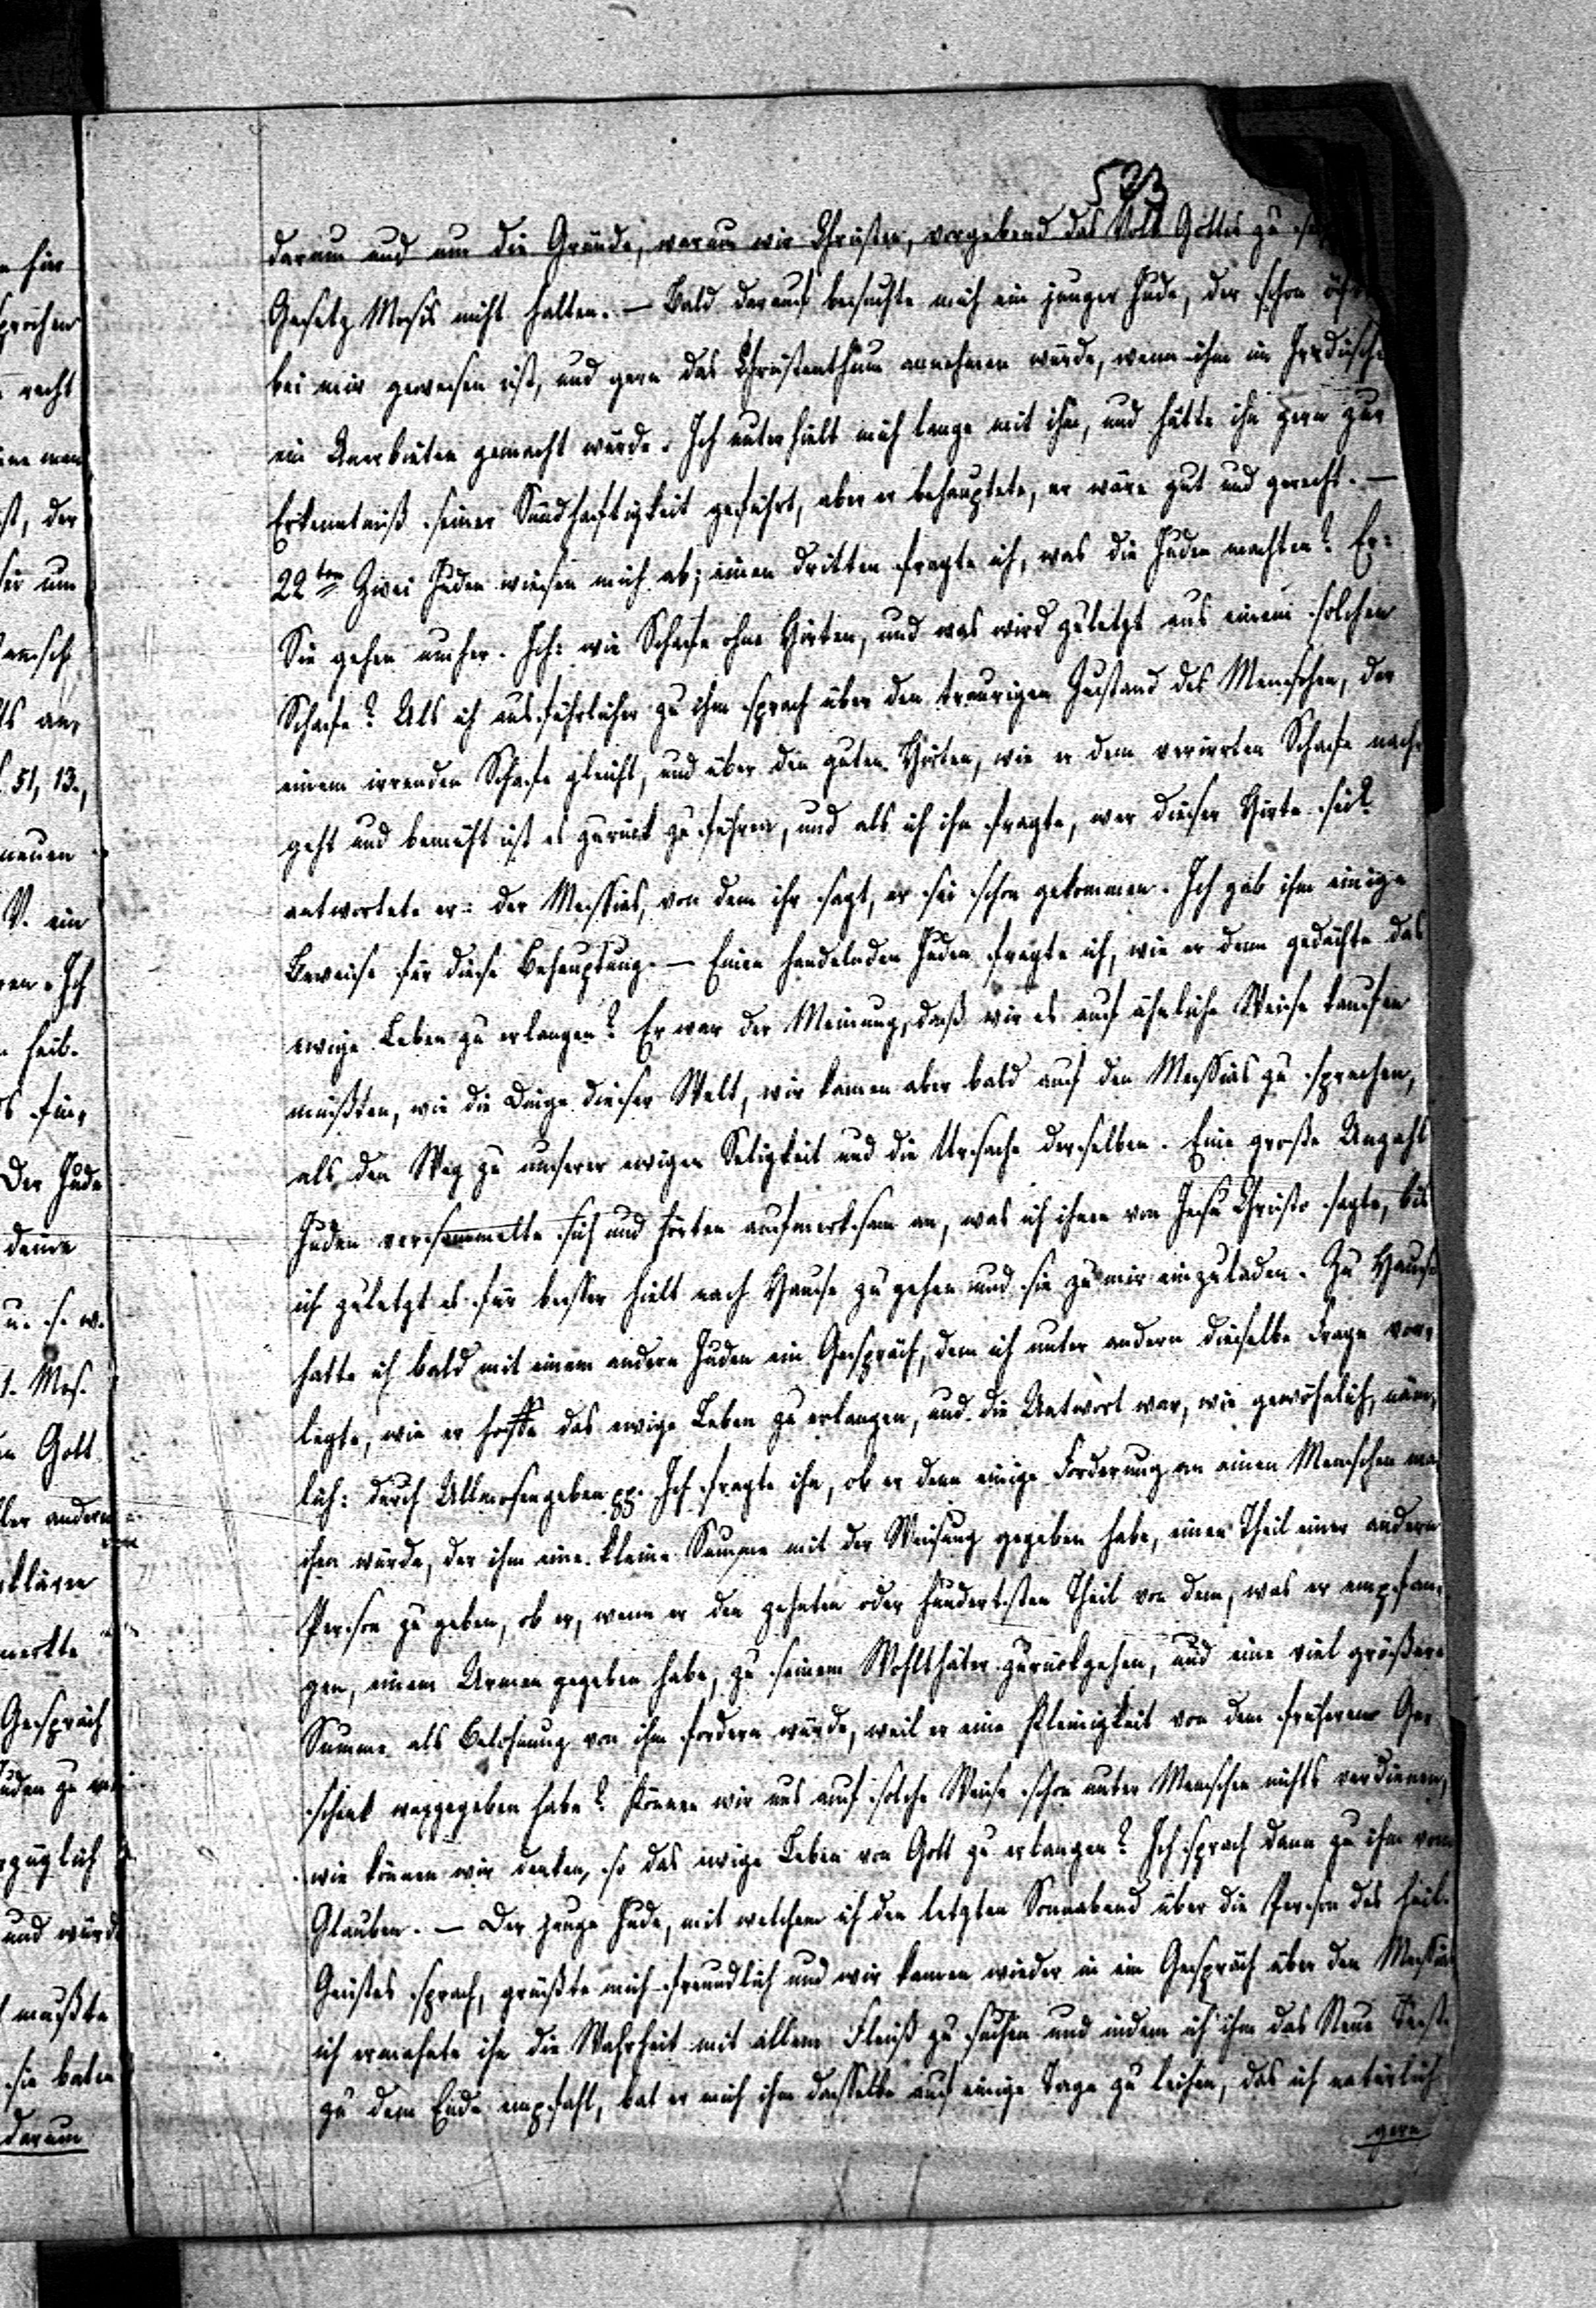 523
darum und um die Gründe, warum wir Christen, vorgebend das Volk Gottes zu
Gesetz Mosis nicht halten. — Bald darauf besuchte mich ein junger Jude, der schon
bei mir gewesen ist, und gern das Christenthum annehmen würde, wenn ihm im
ein Anerbieten gemacht würde. Ich unterhielt mich lange mit ihm, und hätte ihn gern zur
Erkenntniß seiner Sündhaftigkeit geführt, aber er behauptete, er wäre gut und gerecht. —
22ten Zwei Juden wiesen mich ab; einen dritten fragte ich, was die Juden machten? Er:
Sie gehen umher. Ich: wie Schafe ohne Hirten, und was wird zuletzt aus einem solchen
Schafe? Als ich ausführlicher zu ihm sprach über den traurigen Zustand des Menschen, der
einem irrenden Schafe gleicht, und über den guten Hirten, wie er dem verirrten Schafe nach
geht und bemüht ist es zurück zu führen, und als ich ihn fragte, wer dieser Hirte sei?
antwortete er: der Messias, von dem ihr sagt, er sei schon gekommen. Ich gab ihm einige
Beweise für diese Behauptung. — Einen handelnden Juden fragte ich, wie er denn gedächte das
ewige Leben zu erlangen? Er war der Meinung, daß wir es auf ähnliche Weise kaufen
müßten, wie die Dinge dieser Welt, wir kamen aber bald auf den Messias zu sprechen,
als den Weg zu unserer ewigen Seligkeit und die Ursache derselben. Eine große Anzahl
Juden versammelte sich und hörten aufmerksam an, was ich ihnen von Jesu Christo sagte, bis
ich zuletzt es für besser hielt nach Hause zu gehen und sie zu mir einzuladen. Zu Hause
hatte ich bald mit einem andern Juden ein Gespräch, dem ich unter andern dieselbe Frage vor,
legte, wie er hoffe das ewige Leben zu erlangen, und die Antwort war, wie gewöhnlich, näm,
lich: durch Allmosengeben pp. Ich fragte ihn, ob er denn einige Forderung an einen Menschen ma
chen würde, der ihm eine kleine Summe mit der Weisung gegeben habe, einen Theil einer andern
Person zu geben, ob er, wenn er den zehnten oder hundertsten Theil von dem, was er empfan,
gen, einem Armen gegeben habe, zu seinem Wohlthäter zurückgehen, und eine viel größere
Summe als Belohnung von ihm fordern würde, weil er eine Kleinigkeit von dem früheren Ge,
schenk weggegeben habe? Können wir uns auf solche Weise schon unter Menschen nichts verdienen,
wie können wir denken, so das ewige Leben von Gott zu erlangen? Ich sprach dann zu ihm vom
Glauben. — Der junge Jude, mit welchem ich den letzten Sonnabend über die Person des heil.
Geistes sprach, grüßte mich freundlich und wir kamen wieder in ein Gespräch über den Messias
ich ermahnte ihn die Wahrheit mit allem Fleiß zu suchen und indem ich ihm das Neue Test.
zu dem Ende empfahl, bat er mich ihm dasselbe auf einige Tage zu leihen, das ich natürlich
gern